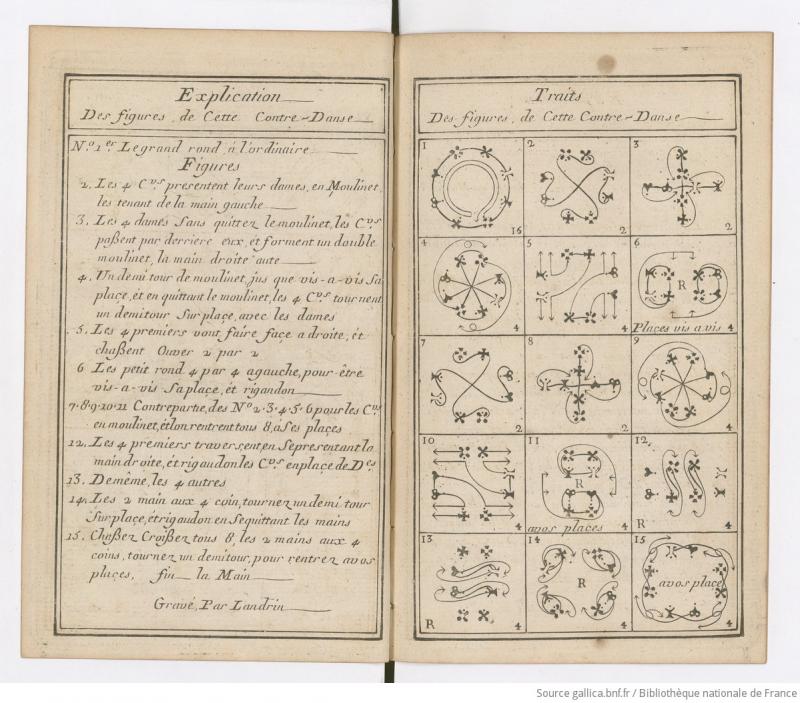 Explication
Des figures, de Cette Contre-Danse
N.º 1.er Le grand rond à l'ordinaire
Figures
2. Les 4 C.vs presentent leurs dames, en Moulinet
les tenant de la main gauche
3. Les 4 dames Sans quittez le moulinet, les C.vs
paßent par derriere eux, et forment un double
moulinet, la main droite aute
4. Un demi tour de moulinet, jus que vis-a-vis Sa
place, et en quittant le moulinet, les 4 C.vs tournent
un demi tour Sur place, avec les dames
5. Les 4 premiers vont faire face a droite, et
chaßent Ouver 2 par 2
6 Les petit rond 4 par 4 agauche, pour-être
vis-a-vis Sa place, et rigaudon
7·8·9·10·11 Contrepartie, des Nº 2·3·4·5·6 pour les C.vs
en moulinet, et lon rentrent tous 8, a Ses places
12. Les 4 premiers traversent, en Se presentant la
main droite, et rigaudon les C.vs en place de D.es
13. De même, les 4 autres
14. Les 2 main aux 4 coin, tournez un demi tour
Sur place, et rigaudon en Se quittant les mains
15. Chaßez Croißez tous 8, les 2 mains aux 4
coins, tournez un demi tour, pour rentrez a vos
places, fin la Main
Gravé, Par Landrin
Traits
Des figures, de Cette Contre-Danse
1
16
2
2
3
2
4
4
5
4
6
R
Places vis a vis
4
7
2
8
2
9
4
10
4
11
R
avos places
4
12
R
4
13
R
4
14
R
4
15
avos place
4
Source gallica.bnf.fr / Bibliothèque nationale de France